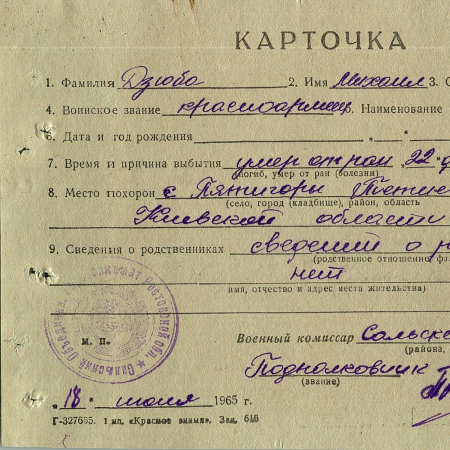 КАРТОЧКА
1. Фамилия Дзюба 2. Имя Михаил 3. О
4. Воинское звание красноармеец 5. Наименование
6. Дата и год рождения
7. Время и причина выбытия умер от ран 22
(погиб, умер от ран (болезни)
8. Место похорон с. Пятигоры Тетие
(село, город (кладбище), район, область
Киевской области
9. Сведения о родственниках сведений о р
(родственное отношение фа
нет
имя, отчество и адрес места жительства)
М. П.
Военный комиссар Сальск
(района,
Подполковник
(звание)
„18 июня 1965 г
Г-327665. 1 мп. «Красное знамя». Зак. 616